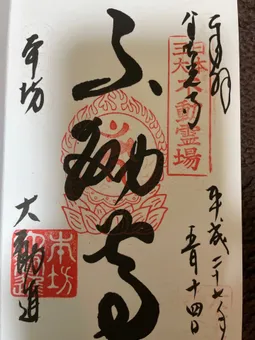 奉拝
善光寺
不動霊場
平成二十七年
五月十四日
不動尊
本坊
大勧進
本坊